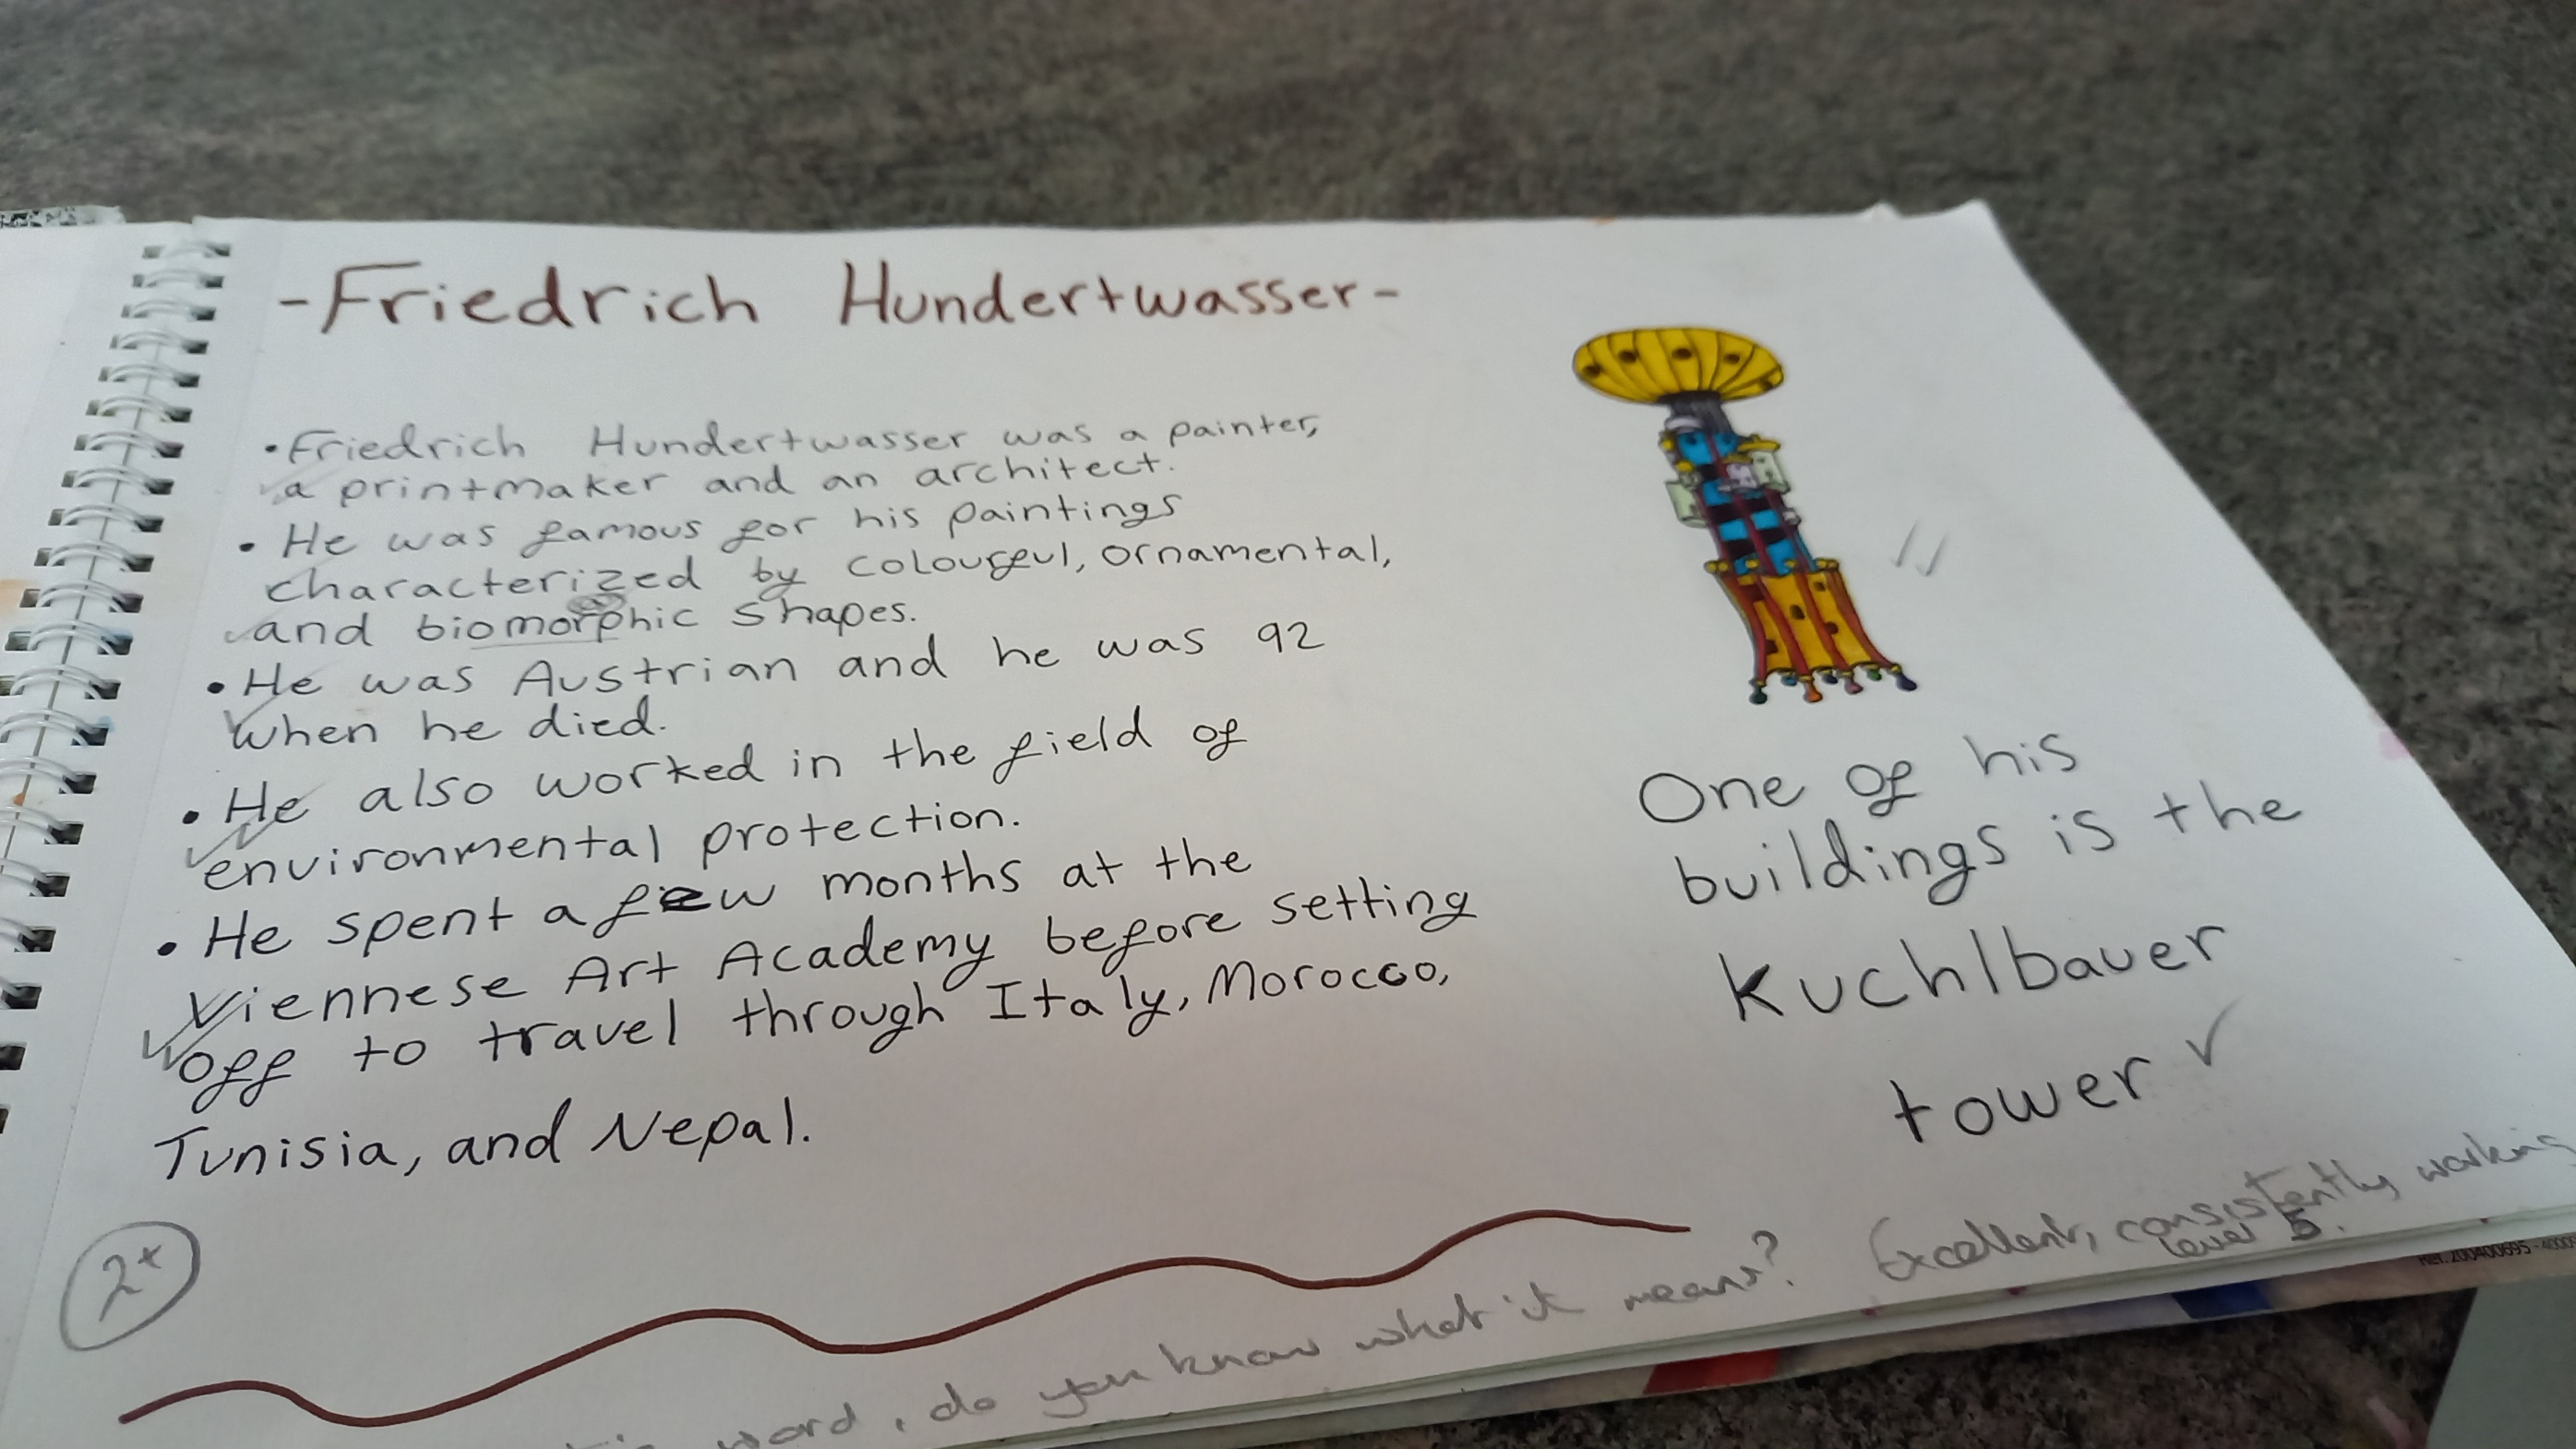 -Friedrich Hundertwasser-
• Friedrich Hundertwasser was a painter,
a printmaker and an architect.
• He was famous for his paintings
characterized by colourful, ornamental,
and biomorphic shapes.
• He was Austrian and he was 92
when he died.
• He also worked in the field of
environmental protection.
• He spent a few months at the
Viennese Art Academy before setting
off to travel through Italy, Morocco,
Tunisia, and Nepal.
One of his
buildings is the
Kuchlbauer
tower
2+
word, do you know what it means?
Excellent, consistently working
level 5.
Ref. 200400695